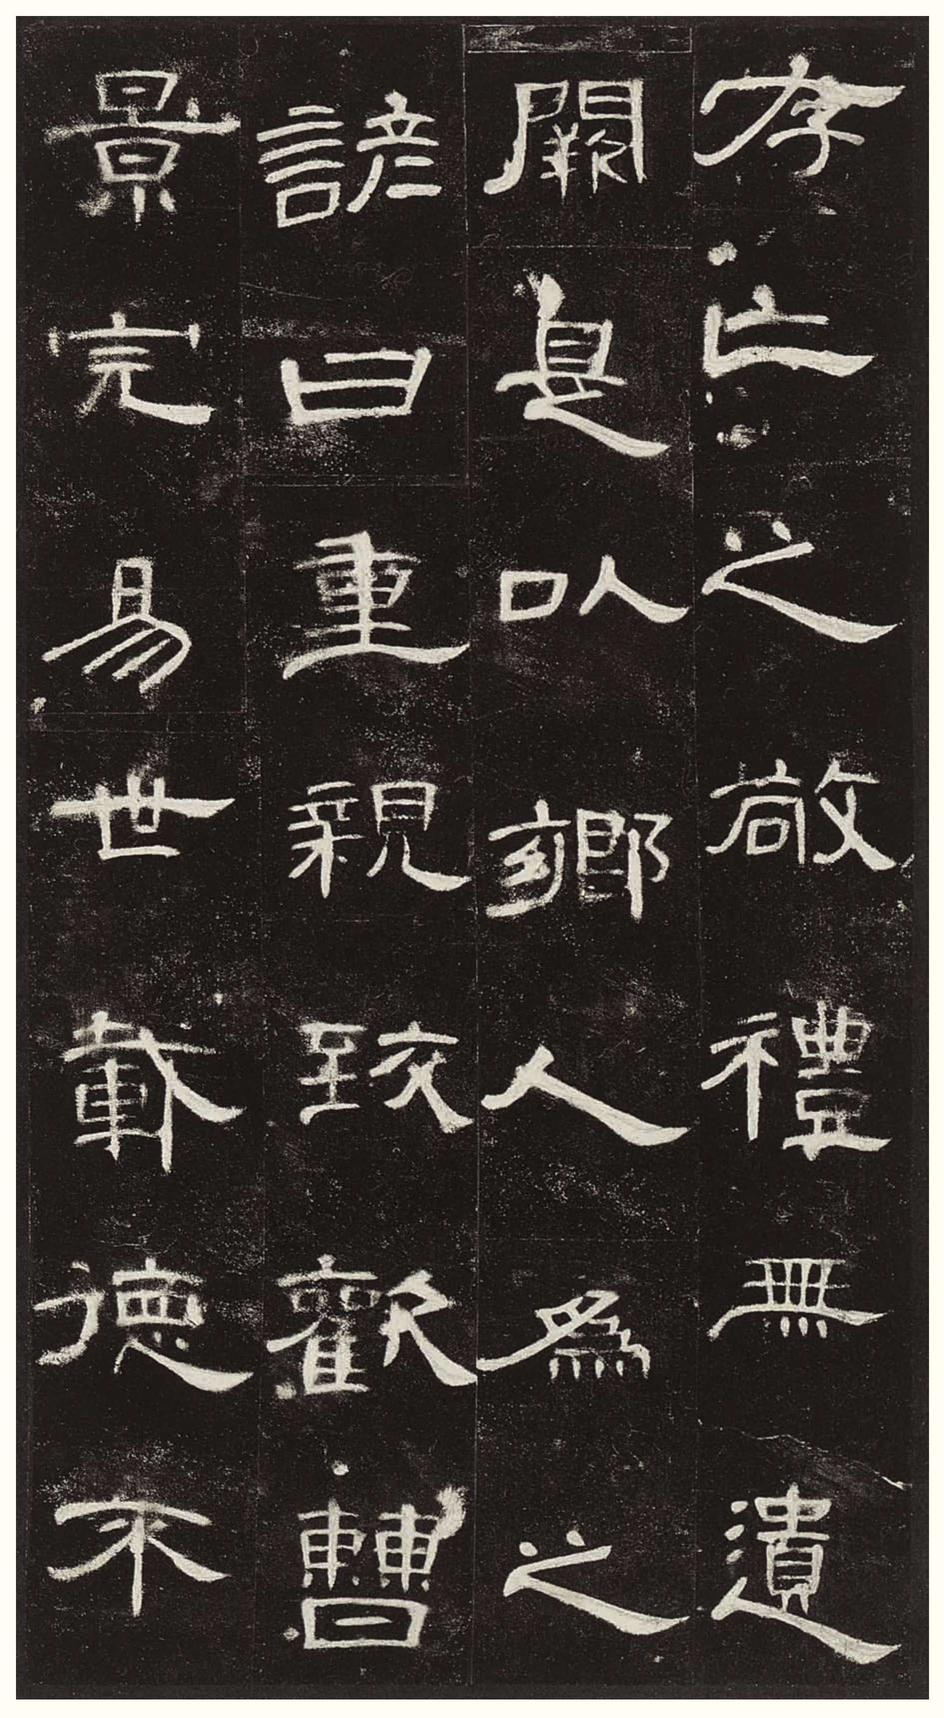 存亡之敬禮無遺
闕是以鄉人為之
諺曰重親致歡曹
景完易世載德不